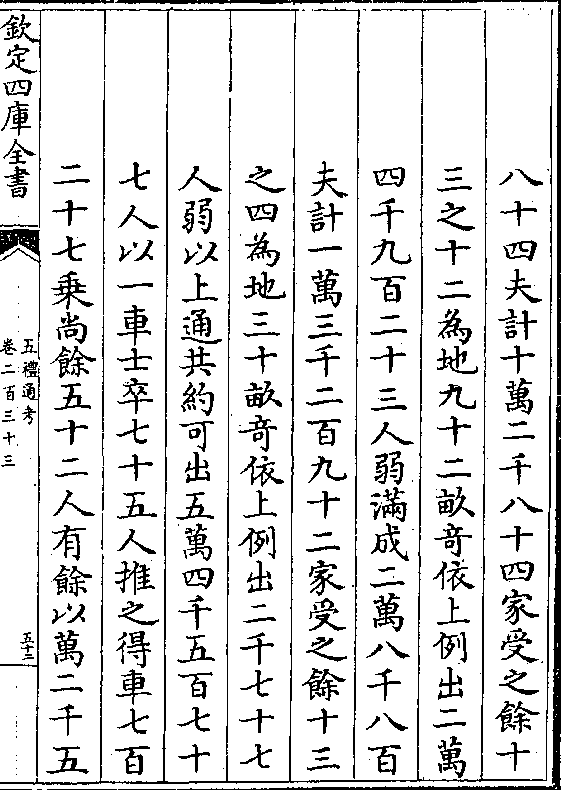 八十四夫計十萬二千八十四家受之餘十
三之十二為地九十二畝竒依上例出二萬
四千九百二十三人弱滿成二萬八千八百
夫計一萬三千二百九十二家受之餘十三
之四為地三十畝竒依上例出二千七十七
人弱以上通共約可出五萬四千五百七十
七人以一車士卒七十五人推之得車七百
二十七乗尚餘五十二人有餘以萬二千五
欽定四庫全書
五禮通考
卷二百三十三
五十二